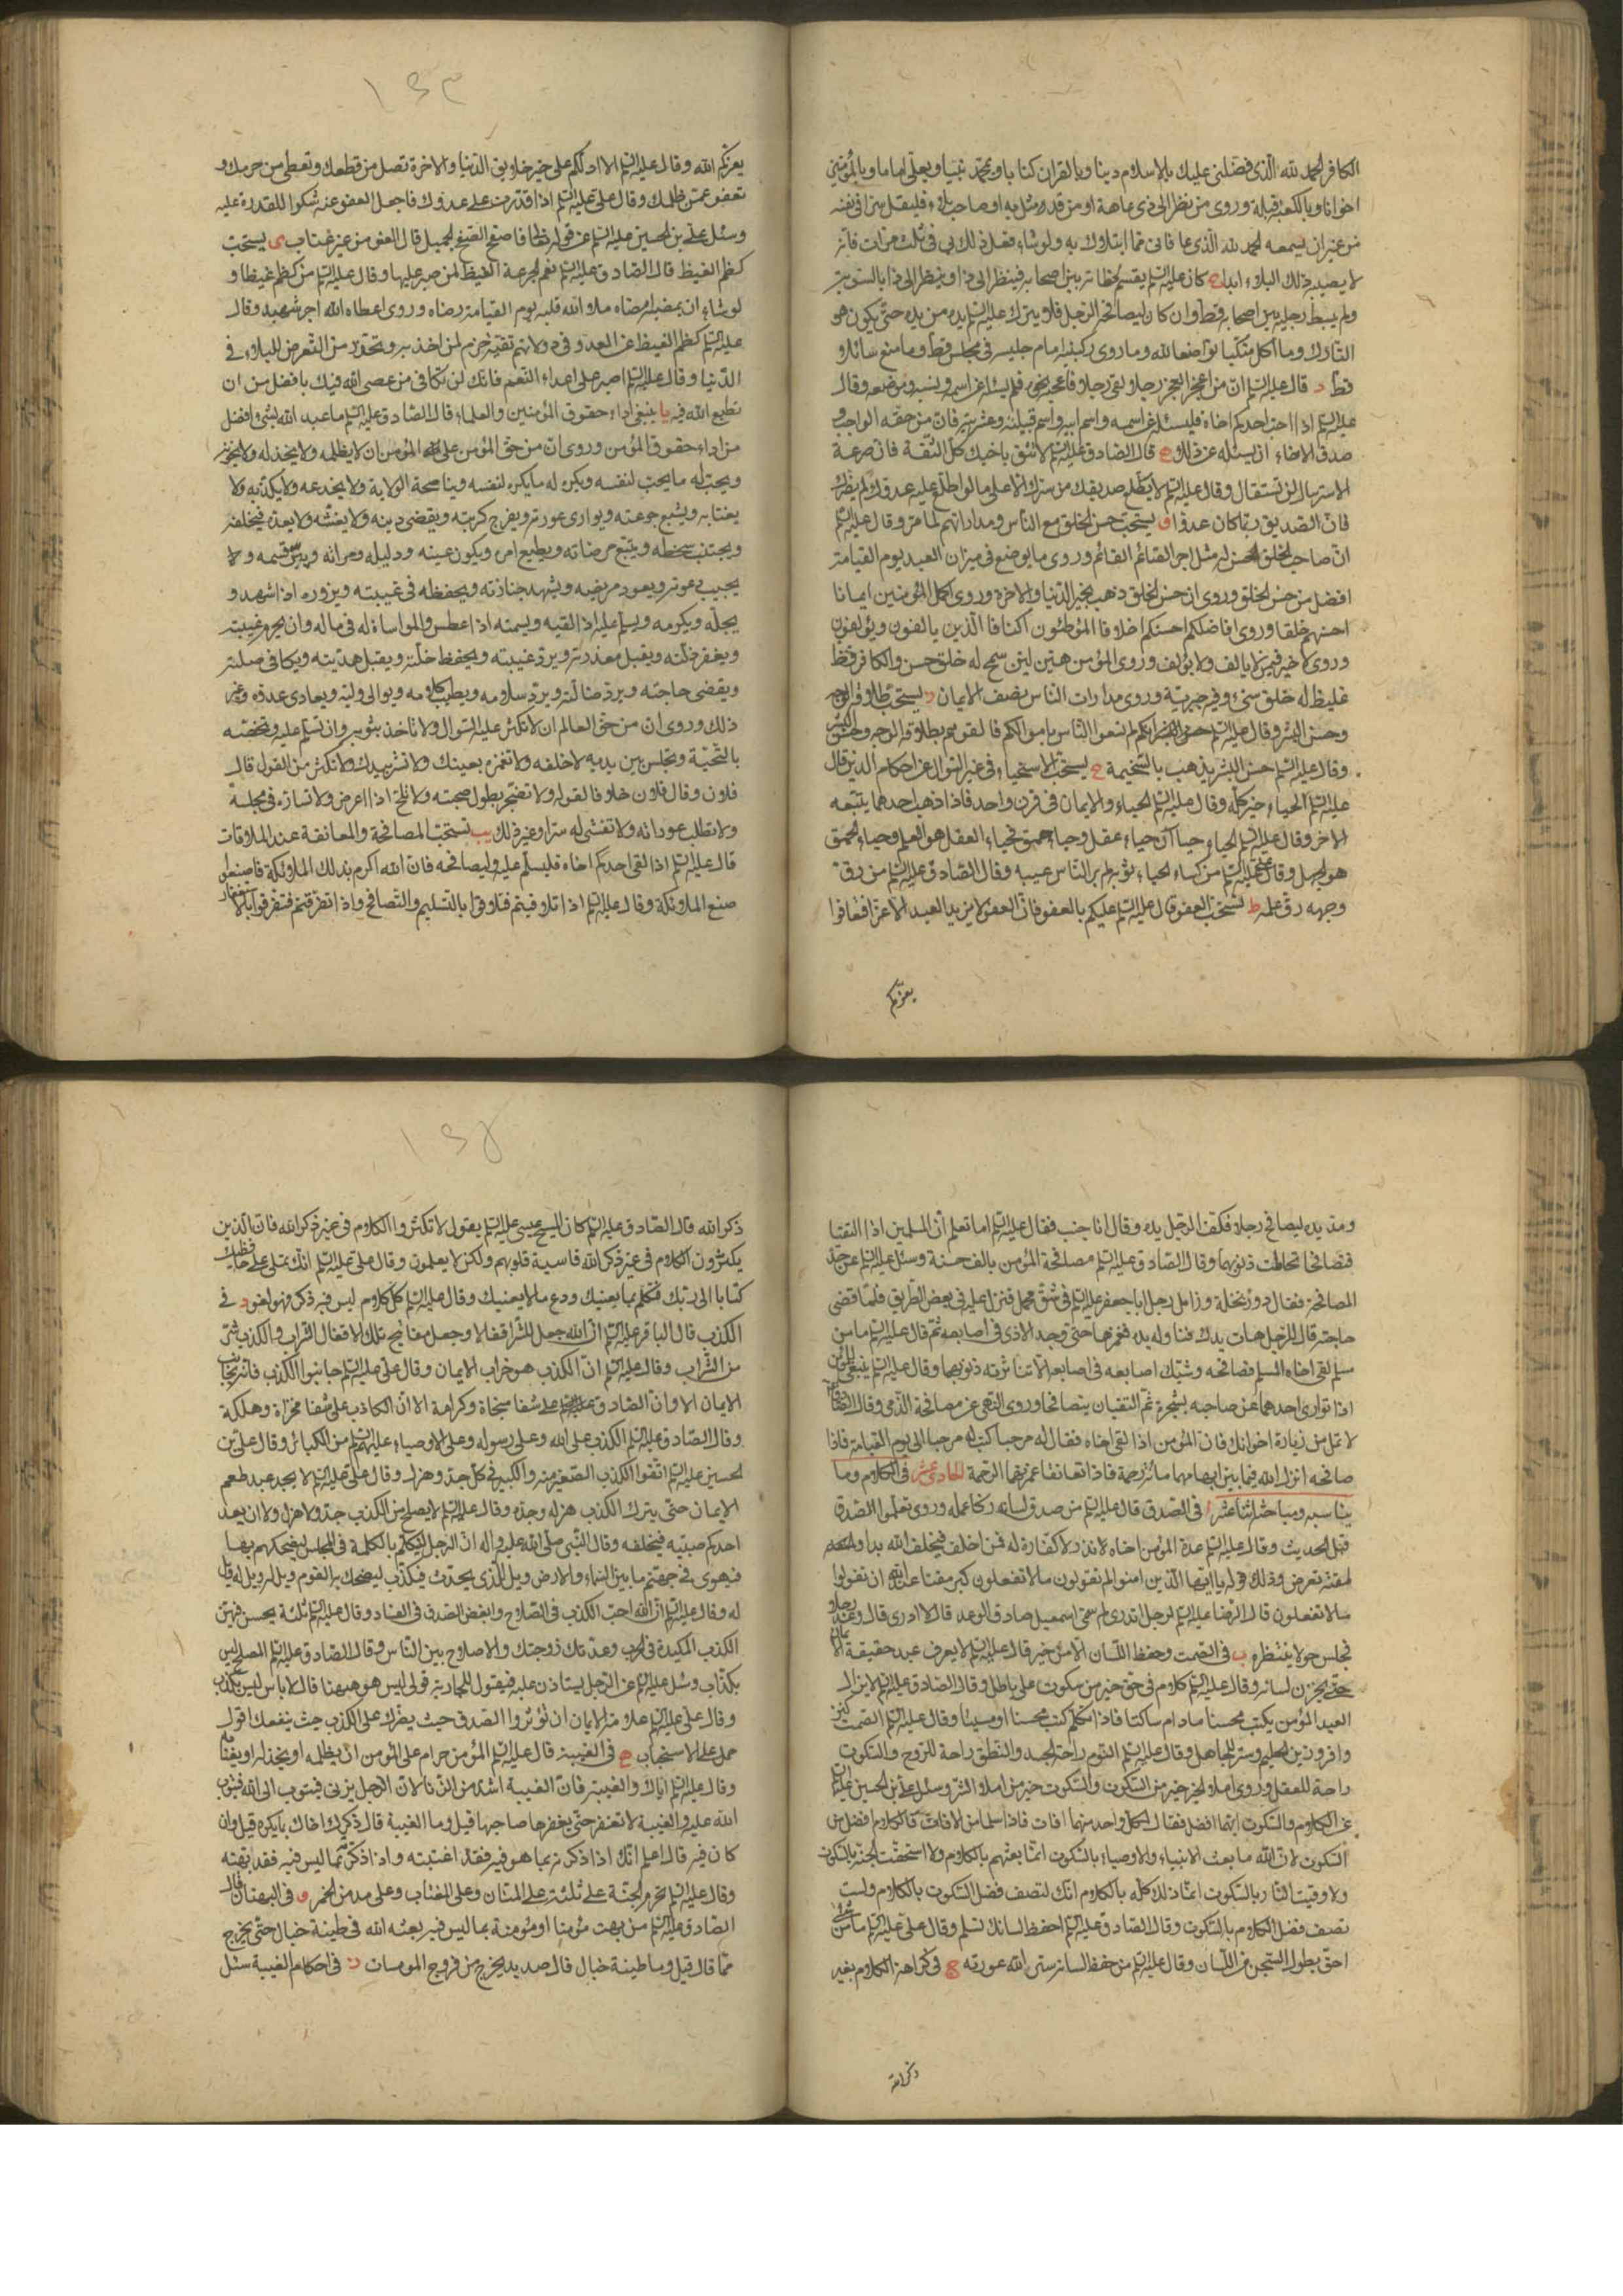 الكافر الحمد لله الّذى فضّلنى عليك بالاسلام دينا وبالقران كتابا وبمحمّد نبيا وبعلّى اماما وبالمؤمنين
اخوانا وبالكعبة قبلة وروى من نظر الى ذى عاهة او من قد مثل به او صاحب بلاء فليقل سرا فى نفسه
من غير ان يسمعه الحمد لله الّذى عافانى مما ابتلاك به ولو شاء فعل ذلك بى فى ثلث مرات فانه
لا يصيبه ذلك البلاء ابدا ج كان عليه السلم يقسم لحظاته بين اصحابه فينظر الى ذا وينظر الى ذا بالسّوية
ولم يبسط رجليه بين اصحابه قط وان كان ليصافحه الرّجل فلا يترك عليه السلم يده من يده حتى يكون هو
التارك وما اكل متكيا تواضعا لله وما روى ركبتيه امام جليسه فى مجلس قط وما منع سائلا
قط د قال عليه السلم ان من اعجز العجز رجلا لقى رجلا فاعجبه نحوه فلم يسئله عن اسمه ونسبه وموضعه وقال
عليه السلم اذا احبّ احدكم اخاه فليسئله عن اسمه واسم ابيه واسم قبيلته وعشيرته فان من حقه الواجب و
صدق الاخاء ان يسئله عن ذلك ه قال الصادق عليه السلم لا تثق باخيك كلّ الثقة فان صرعة
الاسترسال لن تستقال وقال عليه السلم لا تطلع صديقك من سرك الا على ما لو اطلع عليه عدوك لم يضرك
فانّ الصديق ربما كان عدوّا و يستحبّ حسن الخلق مع الناس ومداراتهم لما مرّ وقال عليه السلم
انّ صاحب الخلق الحسن له مثل اجر الصائم القائم وروى ما يوضع فى ميزان العبد يوم القيامة
افضل من حسن الخلق وروى ان حسن الخلق ذهب بخير الدّنيا والاخرة وروى اكمل المؤمنين ايمانا
احسنهم خلقا وروى افاضلكم احسنكم اخلاقا الموطئون اكنافا الّذين يالفون ويؤلفون
وروى لا خير فيمن لا يالف ولا يؤلف وروى المؤمن هيّن ليّن سمح له خلق حسن والكافر فظّ
غليظ له خلق سىّء وفيه جبرية وروى مدارات الناس نصف الايمان ز يستحبّ طلاقة الوجه
وحسن البشر وقال عليه السلم انكم لم تسعوا الناس باموالكم فالقوهم بطلاقة الوجه وحسن البشر
وقال عليه السلم حسن البشر يذهب بالسّخيمة ح يستحبّ الاستحياء فى غير السّؤال عن احكام الدّين قال
عليه السلم الحياء خير كلّه وقال عليه السلم الحياء والايمان فى قرن واحد فاذا ذهب احدهما يتبعه
الاخر وقال عليه السلم الحياء حياآن حياء عقل وحياء حمق فحياء العقل هو العلم وحياء الحمق
هو الجهل وقال على عليه السلم من كساه الحياء ثوبه لم ير النّاس عيبه وقال الصّادق عليه السلم من رقّ
وجهه رقّ علمه ط يستحبّ العفو قال عليه السلم عليكم بالعفو فانّ العفو لا يزيد العبد الا عزّا فتعافوا
يعزكم
١٥٣
يعزكم الله وقال عليه السلم الا ادلّكم على خير خلايق الدّنيا والاخرة تصل من قطعك وتعطى من حرمك و
تعفو عمّن ظلمك وقال على عليه السلم اذا قدرت على عدوك فاجعل العفو عنه شكرا للقدرة عليه
وسئل على بن الحسين عليه السلم عن قوله تعالى فاصفح الصفح الجميل قال العفو من غير عتاب ى يستحبّ
كظم الغيظ قال الصّادق عليه السلم نعم الجرعة الغيظ لمن صبر عليها وقال عليه السلم من كظم غيظا و
لو شاء ان يمضيه امضاه ملأ الله قلبه يوم القيامة رضاه وروى اعطاه الله اجر شهيد وقال
عليه السلم كظم الغيظ عن العدو فى دولاتهم تقية حزم لمن اخذ به وتحرّز من التّعرض للبلاء فى
الدّنيا وقال عليه السلم اصبر على اعداء النّعم فانك لن تكافى من عصى الله فيك بافضل من ان
تطيع الله فيه يا ينبغى اداء حقوق المؤمنين والعلماء قال الصّادق عليه السلم ما عبد الله بشىء افضل
من اداء حقوق المؤمن وروى انّ من حقّ المؤمن على المؤمن ان لا يظلمه ولا يخذله ولا يخونه
ويحبّ له ما يحب لنفسه ويكره له ما يكره لنفسه ويناصحه الولاية ولا يخدعه ولا يكذّبه ولا
يغتابه ويشبع جوعته ويوارى عورته ويفرج كربته ويقضى دينه ولا يغشّه ولا يعده فيخلفه
ويجتنب سخطه ويتّبع مرضاته ويطيع امره ويكون عينه ودليله ومرآته ويبرّ قسمه و لا
يجيب دعوته ويعود مريضه ويشهد جنازته ويحفظه فى غيبته ويزوره اذا شهد و
يجلّه ويكرمه ويسلّم عليه اذا لقيه ويسمته اذا عطس والمواساة له فى ماله وان يحرم غيبته
ويغفر زلته ويقبل معذرته ويردّ غيبته ويحفظ خلّته ويقبل هديّته ويكافى صلته
ويقضى حاجته ويردّ ضالّته ويردّ سلامه ويطيب كلامه ويوالى وليّه ويعادى عدوّه وغير
ذلك وروى ان من حقّ العالم ان لا تكثر عليه السّؤال ولا تاخذ بثوبه وان تسلّم عليه وتخصّه
بالتّحيّة وتجلس بين يديه لا خلفه ولا تغمزه بعينك ولا تشر بيدك ولا تكثر من القول قال
فلان وقال فلان خلافا لقوله ولا تضجر بطول صحبته ولا تلحّ اذا اعرض ولا تسارّه فى مجلسه
ولا تطلب عوراته ولا تفشى له سرّا وغير ذلك يب تستحبّ المصافحة والمعانقة عند الملاقات
قال عليه السلم اذا لقى احدكم اخاه فليسلّم عليه وليصافحه فانّ الله اكرم بذلك الملائكة فاصنعوا
صنع الملائكة وقال عليه السلم اذا تلاقيتم فتلاقوا بالتّسليم والتّصافح واذا تفرّقتم فتفرّقوا بالاستغفار
ومدّ يده ليصافح رجلا فكفّ الرّجل يده وقال انا جنب فقال عليه السلم اما تعلم انّ المسلمين اذا التقيا
فتصافحا تحاطت ذنوبهما وقال الصّادق عليه السلم مصافحة المؤمن بالف حسنة وسئل عليه السلم عن حدّ
المصافحة فقال دور نخلة وزامل رجل اباجعفر عليه السلم فى شقّ محمل فنزل عليه فى بعض الطّريق فلمّا قضى
حاجته قال للرّجل هات يدك فناوله يده فغمزها حتّى وجد الاذى فى اصابعه ثمّ قال عليه السلم ما من
مسلم لقى اخاه المسلم فصافحه وشبّك اصابعه فى اصابعه الّا تناثرت ذنوبهما وقال عليه السلم ينبغى للمؤمن
اذا توارى احدهما عن صاحبه بشجرة ثمّ التقيا ان يتصافحا وروى النّهى عن مصافحة الذّمى وقال الصّادق
لا تملّ من زيارة اخوانك فان المؤمن اذا لقى اخاه فقال له مرحبا كتب له مرحبا الى يوم القيامة فاذا
صافحه انزل الله فيما بين ابهامهما مائة رحمة فاذا تعانقا غمرتهما الرّحمة الحادى عشر فى الكلام وما
يناسبه ومباحثه اثنا عشر ا فى الصّدق قال عليه السلم من صدق لسانه زكا عمله وروى تعلّموا الصّدق
قبل الحديث وقال عليه السلم عدة المؤمن اخاه لا نذر ولا كفّارة له فمن اخلف فبخلف الله بدا
لمقته تعرض وذلك قوله يا ايّها الّذين امنوا لم تقولون ما لا تفعلون كبر مقتا عند الله ان تقولوا
ما لا تفعلون قال الرّضا عليه السلم لرجل اتدرى لم سمّى اسمعيل صادق الوعد قال لا ادرى قال وعد رجلا
فجلس حولا ينتظره ب فى الصّمت وحفظ اللّسان الّا من خير قال عليه السلم لا يعرف عبد حقيقة الايمان
حتّى يخزن لسانه وقال عليه السلم كلام فى حق خير من سكوت على باطل وقال الصّادق عليه السلم لا يزال
العبد المؤمن يكتب محسنا ما دام ساكتا فاذا تكلّم كتب محسنا او مسيئا وقال عليه السلم الصمت كنز
وافر وزين الحليم وستر الجاهل وقال عليه السلم النّوم راحة الجسد والنّطق راحة للرّوح والسّكوت
راحة للعقل وروى املاء الخير خير من السّكوت والسّكوت خير من املاء الشّر وسئل على بن الحسين عليه السلم
عن الكلام والسّكوت ايّهما افضل فقال لكلّ واحد منهما افات فاذا سلما من الافات فالكلام افضل من
السّكوت لانّ الله ما بعث الانبياء والاوصياء بالسّكوت انّما بعثهم بالكلام ولا استحقّت الجنّة بالسّكوت
ولا وقيت النّار بالسّكوت انّما ذلك كلّه بالكلام انك لتصف فضل السّكوت بالكلام ولست
تصف فضل الكلام بالسّكوت وقال الصّادق عليه السلم احفظ لسانك تسلم وقال على عليه السلم ما من شىء
احقّ بطول السّجن من اللّسان وقال عليه السلم من حفظ لسانه ستر الله عورته ج فى كراهة الكلام بغير
ذكر الله
١٥٤
ذكر الله قال الصّادق عليه السلم كان المسيح عيسى عليه السلم يقول لا تكثروا الكلام فى غير ذكر الله فانّ الّذين
يكثرون الكلام فى غير ذكر الله قاسية قلوبهم ولكن لا يعلمون وقال على عليه السلم انّك تملى على حافظيك
كتابا الى ربّك فتكلّم بما يعنيك ودع ما لا يعنيك وقال عليه السلم كلّ كلام ليس فيه ذكر فهو لغو د فى
الكذب قال الباقر عليه السلم انّ الله جعل للشّر اقفالا وجعل مفاتيح تلك الاقفال الشّراب والكذب شرّ
من الشّراب وقال عليه السلم انّ الكذب هو خراب الايمان وقال على عليه السلم جانبوا الكذب فانّه يجانب
الايمان الا وانّ الصّادق على شفا منجاة وكرامة الا انّ الكاذب على شفا مخزاة وهلكة
وقال الصّادق عليه السلم الكذب على الله وعلى رسوله وعلى الاوصياء عليهم السلم من الكبائر وقال على بن
الحسين عليه السلم اتّقوا الكذب الصّغير منه والكبير فى كلّ جدّ وهزل وقال على عليه السلم لا يجد عبد طعم
الايمان حتّى يترك الكذب هزله وجدّه وقال عليه السلم لا يصلح من الكذب جدّ ولا هزل ولا ان يعد
احدكم صبيّه فيخلفه وقال النّبى صلّى الله عليه واله انّ الرجل ليتكلّم بالكلمة فى المجلس ليضحكهم بها
فيهوى فى جهنّم ما بين السّماء والارض ويل للّذى يحدّث فيكذب ليضحك به القوم ويل له ويل له ويل
له وقال عليه السلم انّ الله احبّ الكذب فى الصّلاح وابغض الصّدق فى الفساد وقال عليه السلم ثلثة يحسن فيهنّ
الكذب المكيدة فى الحرب وعدتك زوجتك والاصلاح بين النّاس وقال الصّادق عليه السلم المصلح ليس
بكذّاب وسئل عليه السلم عن الرّجل يستاذن عليه فيقول للجارية قولى ليس هو هيهنا قال لا باس ليس بكذب
وقال على عليه السلم علامة الايمان ان تؤثروا الصّدق حيث يضرّك على الكذب حيث ينفعك اقول
حمل على الاستحباب ه فى الغيبة قال عليه السلم المؤمن حرام على المؤمن ان يظلمه او يخذله او يغتابه
وقال عليه السلم ايّاك والغيبة فانّ الغيبة اشدّ من الزّنا لانّ الرّجل يزنى فيتوب الى الله فيتوب
الله عليه والغيبة لا تغفر حتّى يغفرها صاحبها قيل وما الغيبة قال ذكرك اخاك بما يكره قيل وان
كان فيه قال اعلم انّك اذا ذكرته بما هو فيه فقد اغتبته واذا ذكرته بما ليس فيه فقد بهته
وقال عليه السلم تحرم الجنّة على ثلثة على المنّان وعلى المغتاب وعلى مدمن الخمر و فى البهتان قال
الصّادق عليه السلم من بهت مؤمنا او مؤمنة بما ليس فيه بعثه الله فى طينة خبال حتّى يخرج
ممّا قال قيل وما طينة خبال قال صديد يخرج من فروج المومسات ز فى احكام الغيبة سئل